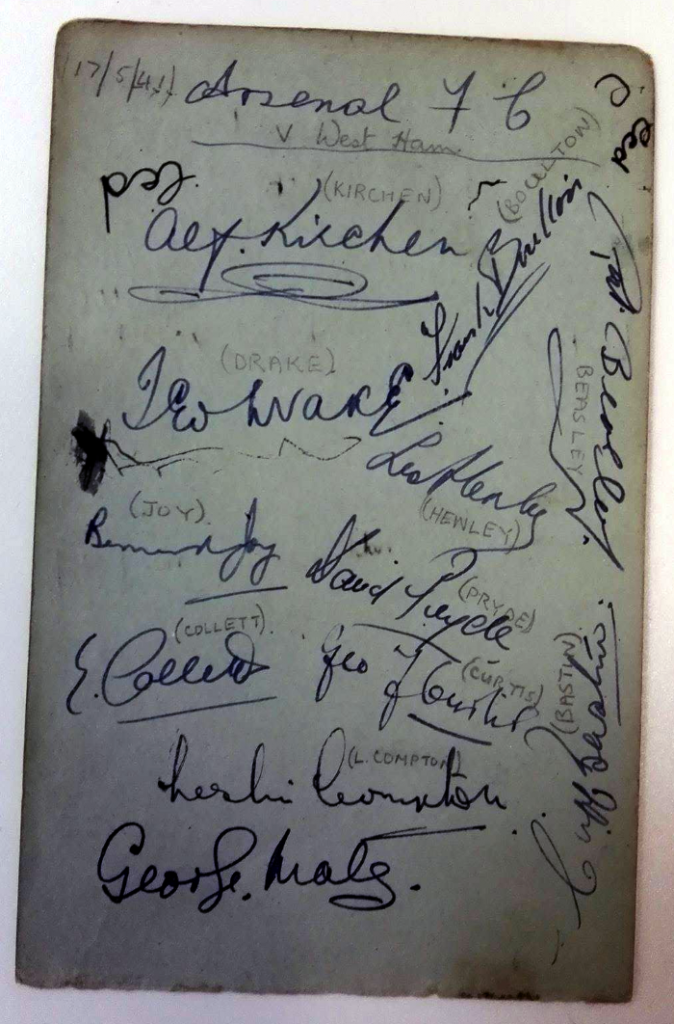 (17/5/41)
Arsenal F C
V West Ham
(KIRCHEN)
Alf. Kirchen
(BOULTON)
Frank Boulton
(DRAKE)
Ted Drake
Pat. Beasley
BEASLEY
Les Henley
(HENLEY)
(JOY)
Bernard Joy
David Pryde
(PRYDE)
(COLLETT)
E. Collett
Geo F Curtis
(CURTIS)
Cliff Bastin
(BASTIN)
(L. COMPTON)
Leslie Compton
George. Male.